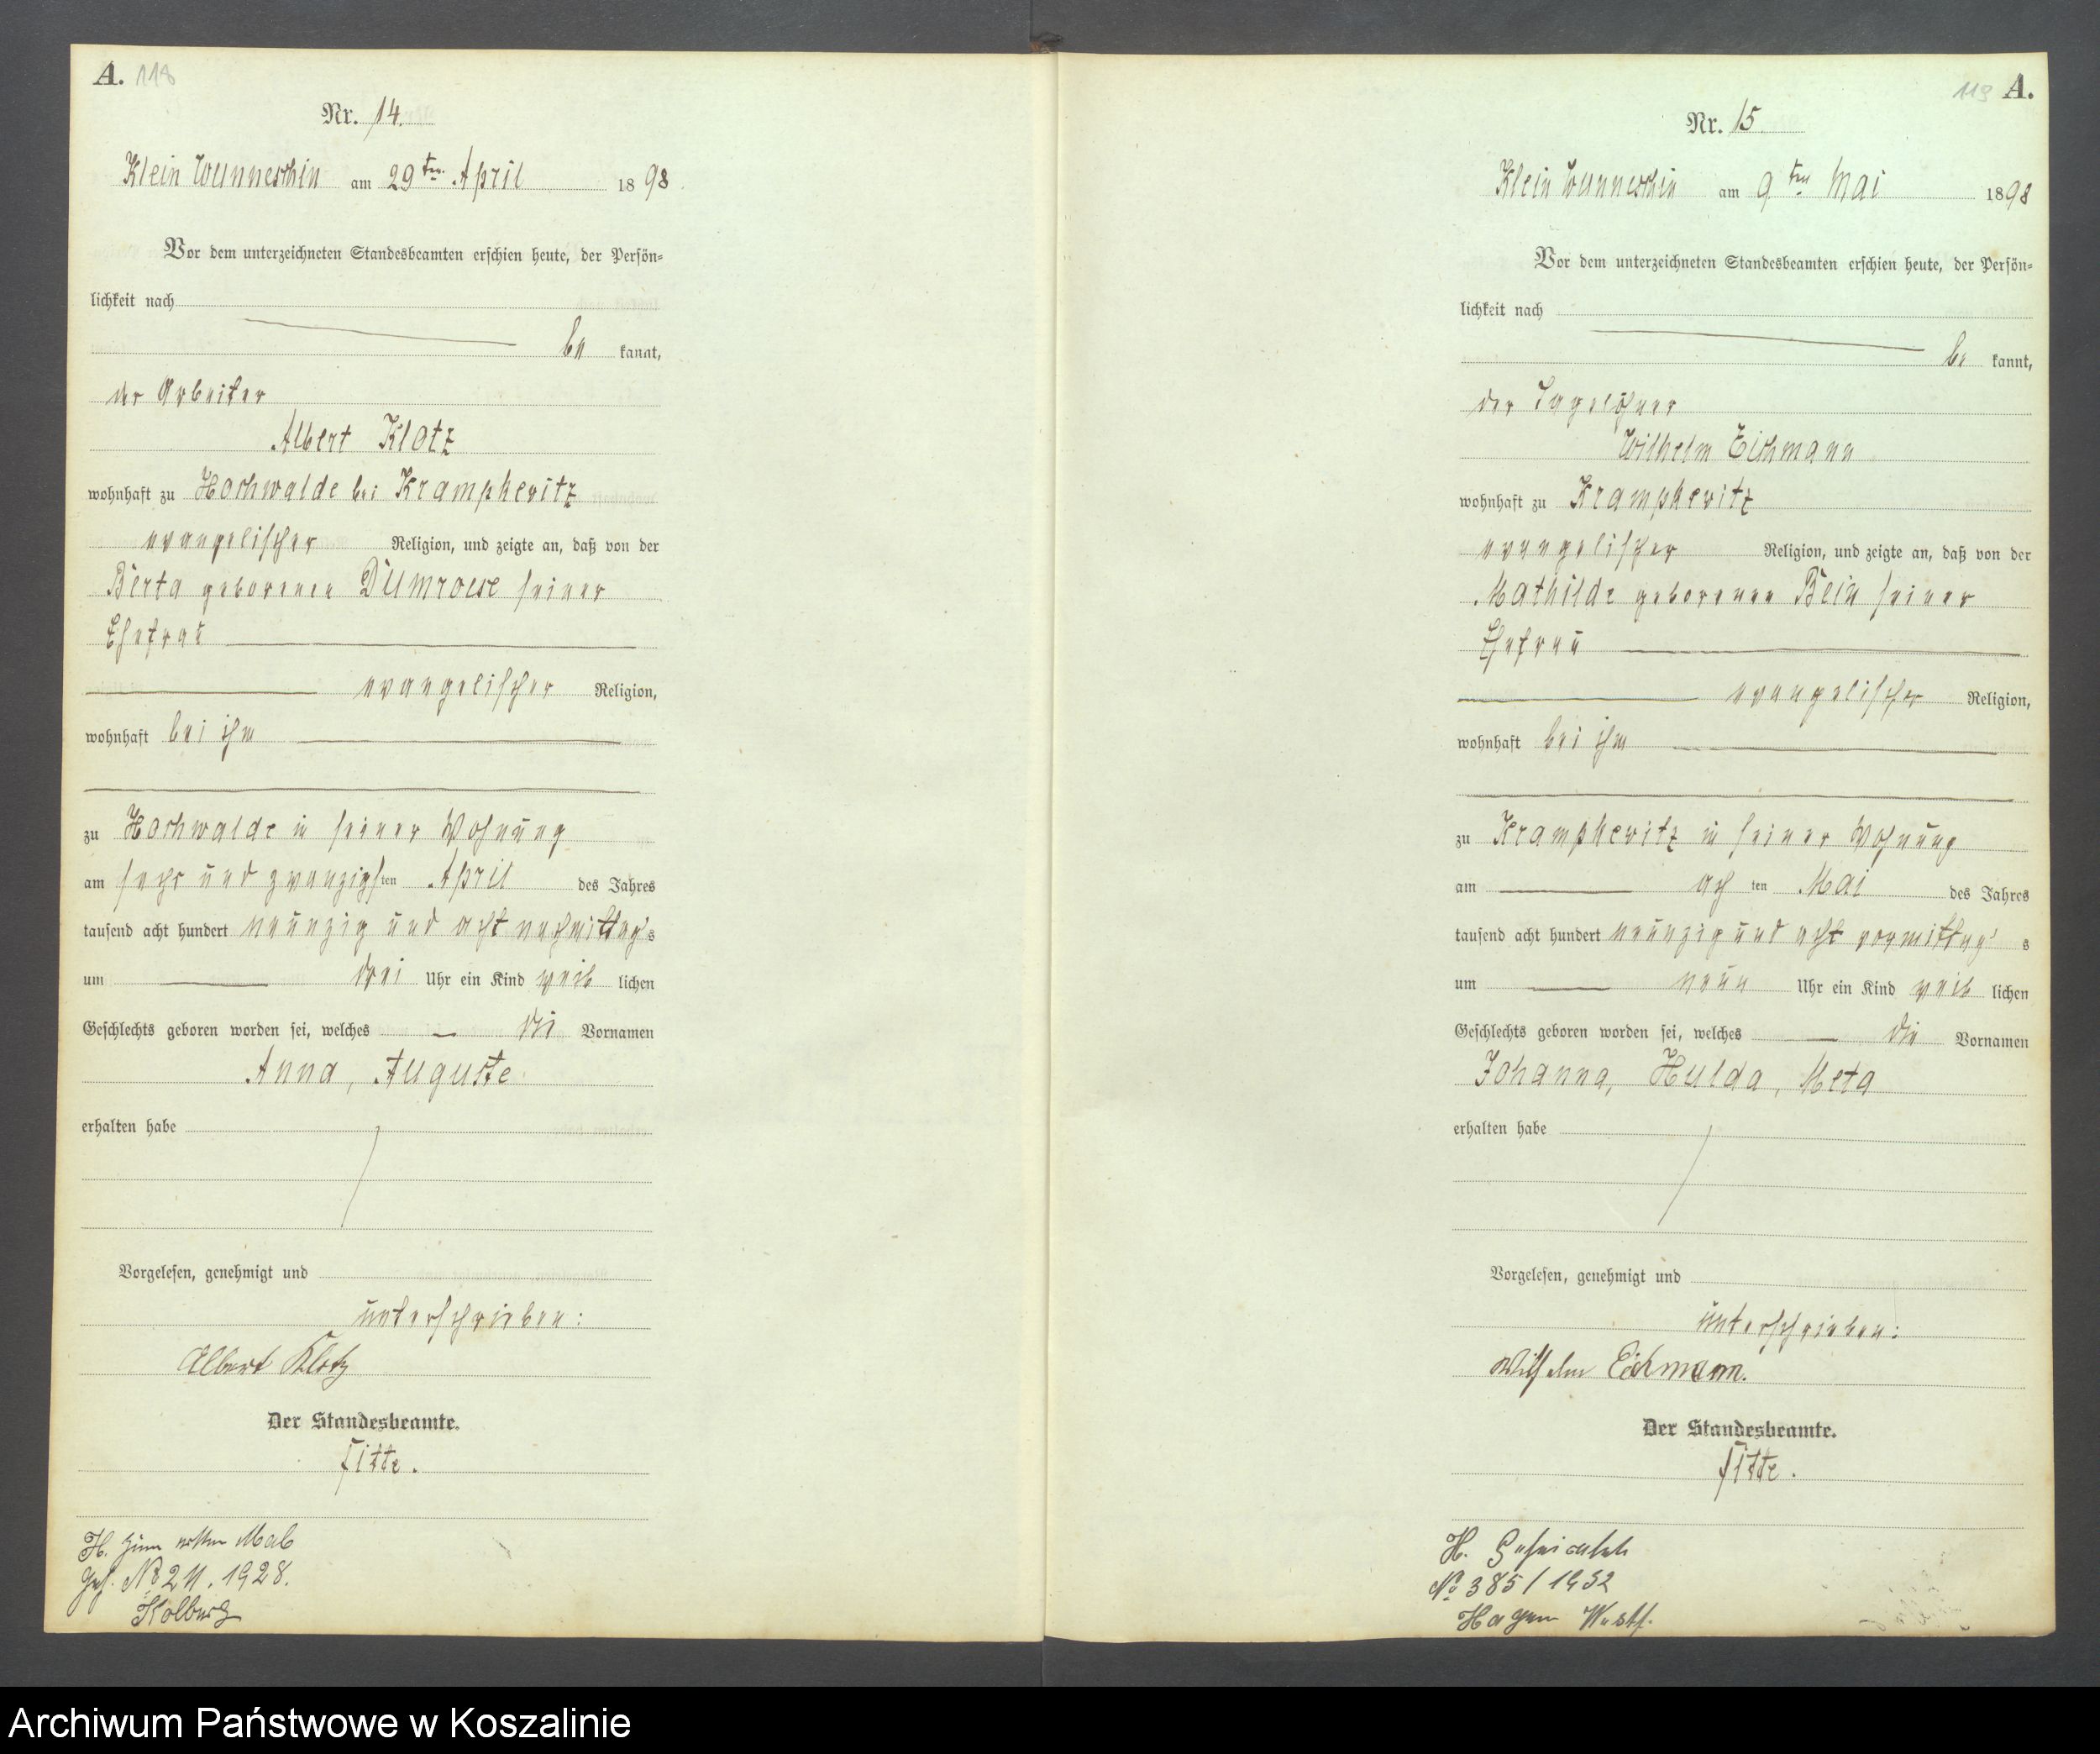 A. 118
Nr. 14.
Klein Wunneschin am 29ten April 1898.
Vor dem unterzeichneten Standesbeamten erschien heute, der Persön-
lichkeit nach
be kannt,
der Arbeiter
Albert Klotz
wohnhaft zu Hochwalde bei Krampkewitz
evangelischer Religion, und zeigte an, daß von der
Berta geborenen Dumroese seiner
Ehefrau
evangelischer Religion,
wohnhaft bei ihm
zu Hochwalde in seiner Wohnung
am sechs und zwanzigsten April des Jahres
tausend acht hundert neunzig und acht nachmittags
um drei Uhr ein Kind weib lichen
Geschlechts geboren worden sei, welches die Vornamen
Anna, Auguste
erhalten habe
Vorgelesen, genehmigt und
unterschrieben:
Albert Klotz
Der Standesbeamte.
Titte.
H. zum ersten Mal
No 1928.
Kolberg
119 A.
Nr. 15.
Klein Wunneschin am 9ten Mai 1898
Vor dem unterzeichneten Standesbeamten erschien heute, der Persön-
lichkeit nach
be kannt,
der Tagelöhner
Wilhelm Eichmann
wohnhaft zu Krampkewitz
evangelischer Religion, und zeigte an, daß von der
Mathilde geborenen Bein seiner
Ehefrau
evangelischer Religion,
wohnhaft bei ihm
zu Krampkewitz in seiner Wohnung
am ach ten Mai des Jahres
tausend acht hundert neunzig und acht vormittag s
um neun Uhr ein Kind weib lichen
Geschlechts geboren worden sei, welches die Vornamen
Johanna, Hulda, Meta
erhalten habe
Vorgelesen, genehmigt und
unterschrieben:
Wilhelm Eichmann.
Der Standesbeamte.
Titte.
H. Geheiratet
No 385/1932
Hagen Westf.
Archiwum Państwowe w Koszalinie